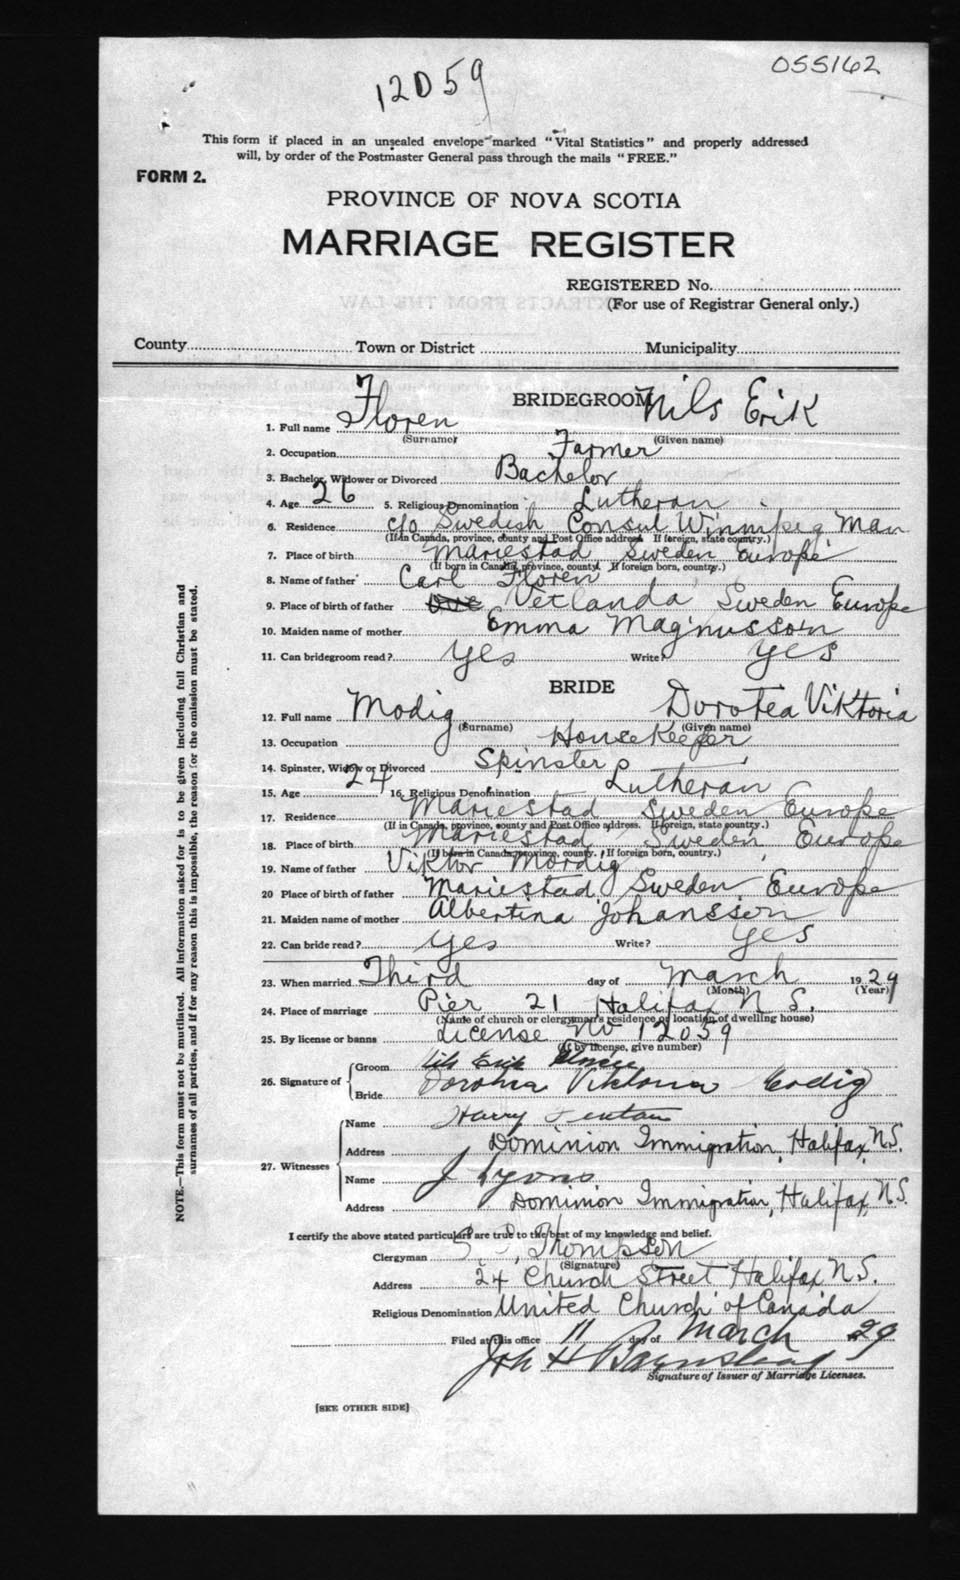 12059
055162
This form if placed in an unsealed envelope marked "Vital Statistics" and properly addressed
will, by order of the Postmaster General pass through the mails "FREE."
FORM 2.
PROVINCE OF NOVA SCOTIA
MARRIAGE REGISTER
REGISTERED No.
(For use of Registrar General only.)
County Town or District Municipality
BRIDEGROOM
1. Full name Floren Nils Erik
(Surname) (Given name)
2. Occupation Farmer
3. Bachelor, Widower or Divorced Bachelor
4. Age 26 5. Religious Denomination Lutheran
6. Residence c/o Swedish Consul Winnipeg Man
(If in Canada, province, county and Post Office address. If foreign, state country.)
7. Place of birth Mariestad Sweden Europe
(If born in Canada, province, county. If foreign born, country.)
8. Name of father Carl Floren
9. Place of birth of father Vetlanda Sweden Europe
10. Maiden name of mother Emma Magnusson
11. Can bridegroom read? yes Write? yes
BRIDE
12. Full name Modig Dorotea Viktoria
(Surname) (Given name)
13. Occupation Housekeeper
14. Spinster, Widow or Divorced Spinster
15. Age 24 16. Religious Denomination Lutheran
17. Residence Mariestad Sweden Europe
(If in Canada, province, county and Post Office address. If foreign, state country.)
18. Place of birth Mariestad Sweden Europe
(If born in Canada, province, county. If foreign born, country.)
19. Name of father Viktor Mordig
20 Place of birth of father Mariestad Sweden Europe
21. Maiden name of mother Albertina Johansson
22. Can bride read? yes Write? yes
23. When married Third day of March 1929
(Month) (Year)
24. Place of marriage Pier 21 Halifax N S.
(Name of church or clergyman's residence or location of dwelling house)
25. By license or banns License No 12059
(If by license, give number)
26. Signature of Groom Nils Erik
Bride Viktoria Modig
27. Witnesses Name Harry
Address Dominion Immigration, Halifax, N.S.
Name J Lyons
Address Dominion Immigration, Halifax, N.S.
I certify the above stated particulars are true to the best of my knowledge and belief.
Clergyman Thompson
(Signature)
Address 24 Church Street Halifax N S.
Religious Denomination United Church of Canada
Filed at this office 11 day of March 29
Signature of Issuer of Marriage Licenses.
[SEE OTHER SIDE]
NOTE.—This form must not be mutilated. All information asked for is to be given including full Christian and
surnames of all parties, and if for any reason this is impossible, the reason for the omission must be stated.